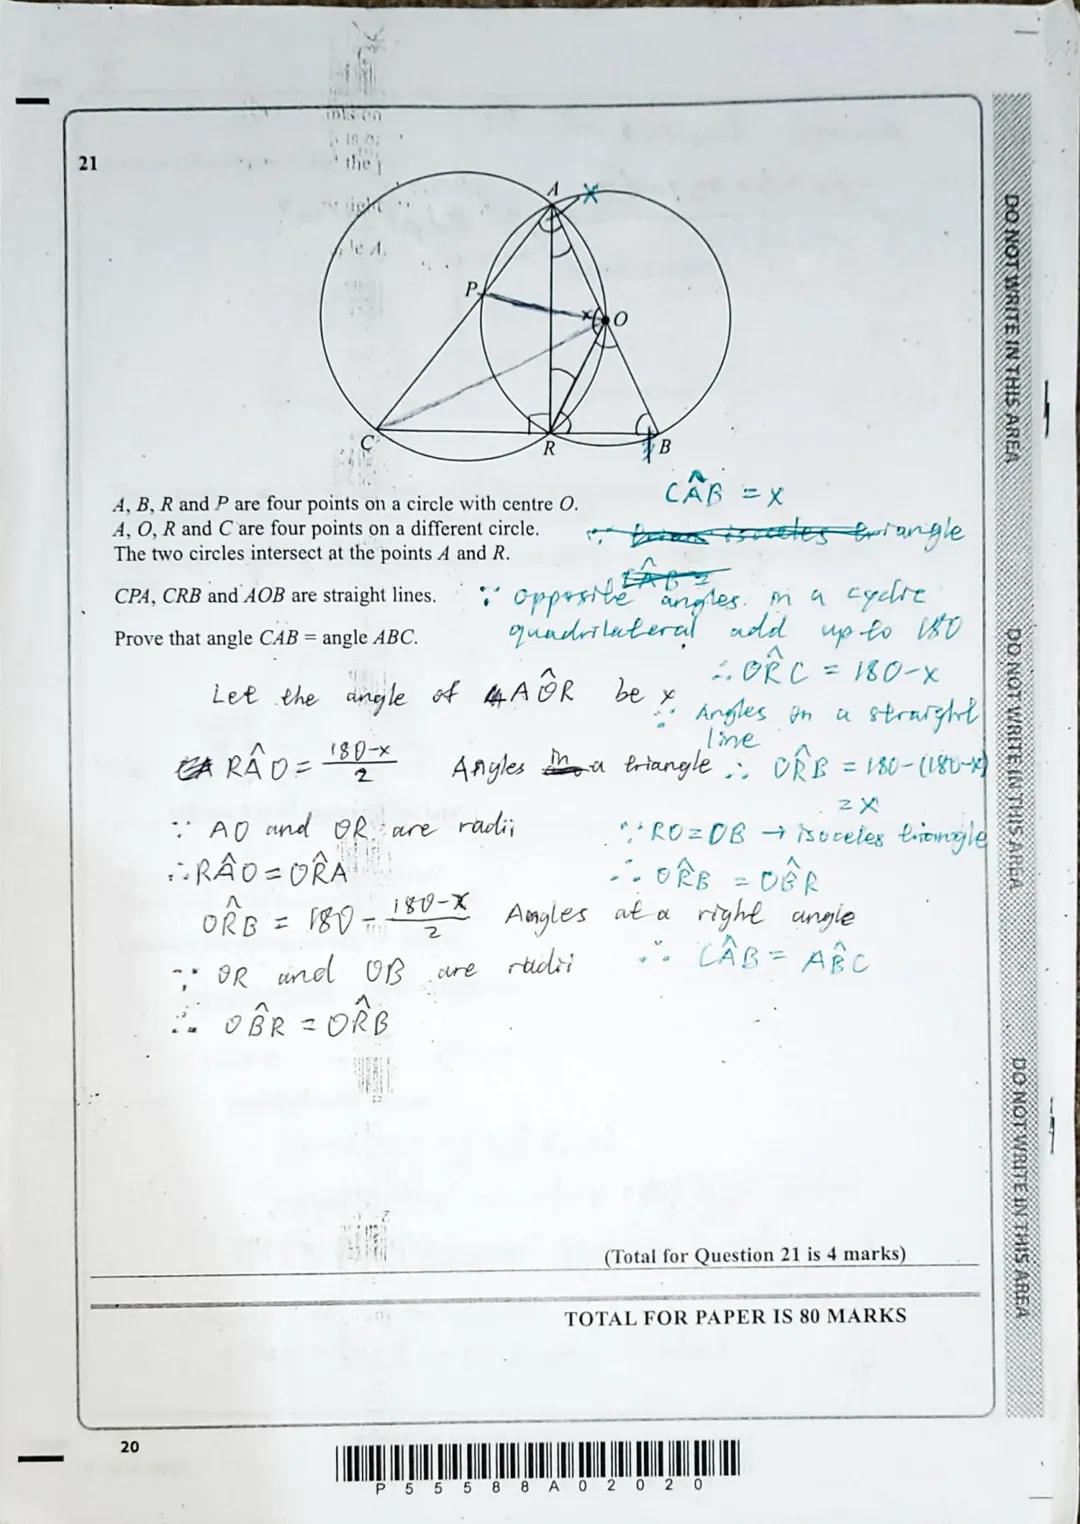 21
A
X
P
x
O
C
R
B
A, B, R and P are four points on a circle with centre O.
A, O, R and C are four points on a different circle.
The two circles intersect at the points A and R.
CPA, CRB and AOB are straight lines.
Prove that angle CAB = angle ABC.
CÂB = x
isoceles triangle
∵ opposite angles in a cyclic
quadrilateral add up to 180
∴ OR̂C = 180-x
∵ Angles on a straight
line
∴ OR̂B = 180-(180-x)
= x
∵ RO = OB → isoceles triangle
∴ OR̂B = OB̂R
∴ CÂB = AB̂C
Let the angle of AÔR be x
RÂO = 180-x
2
Angles in a triangle
∵ AO and OR are radii
∴ RÂO = OR̂A
OR̂B = 180 - 180-x
2
Angles at a right angle
∵ OR and OB are radii
∴ OB̂R = OR̂B
(Total for Question 21 is 4 marks)
TOTAL FOR PAPER IS 80 MARKS
20
P 5 5 5 8 8 A 0 2 0 2 0
DO NOT WRITE IN THIS AREA
DO NOT WRITE IN THIS AREA
DO NOT WRITE IN THIS AREA